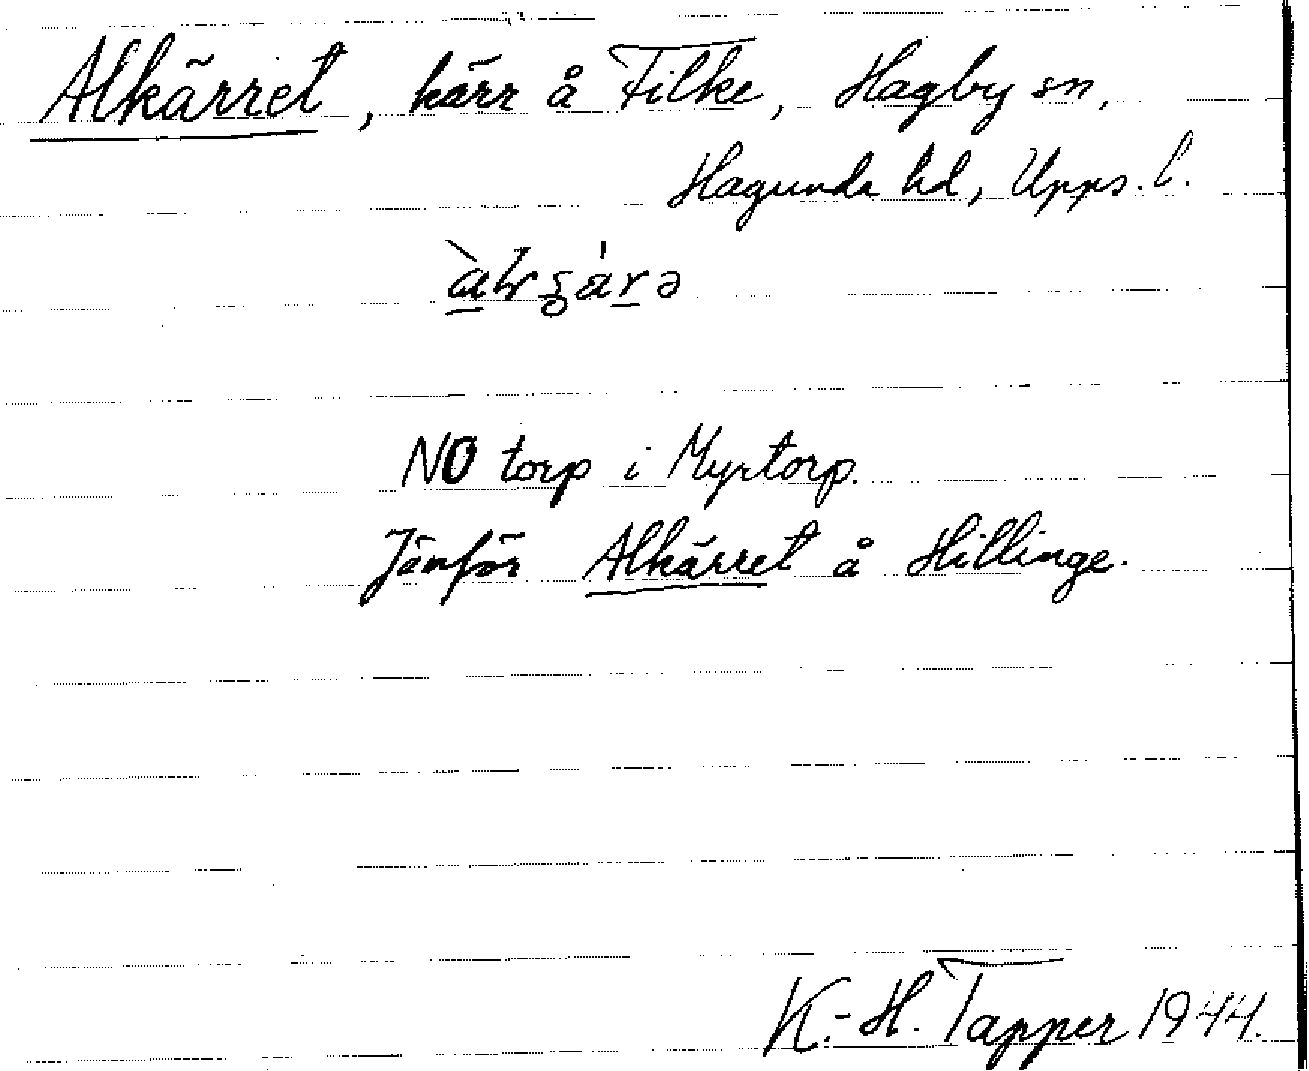 Alkärret, kärr å Filke, Hagby sn,
Hagunda hd, Upps. l.
NO torp i Myrtorp.
Jämför Alkärret å Hillinge.
K.-H. Tapper 1944.